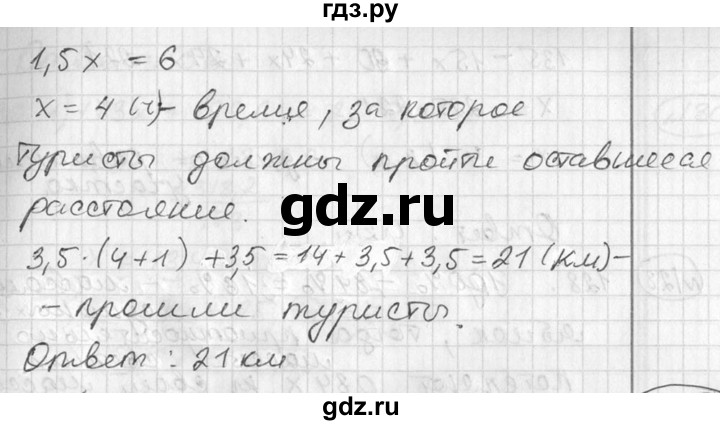 гдз.ру
1,5x = 6
x = 4 (ч) - время, за которое
туристы должны пройти оставшееся
расстояние.
gdz.ru
3,5·(4+1) +3,5 = 14 + 3,5 + 3,5 = 21 (км) -
- прошли туристы.
Ответ: 21 км
gdz.ru